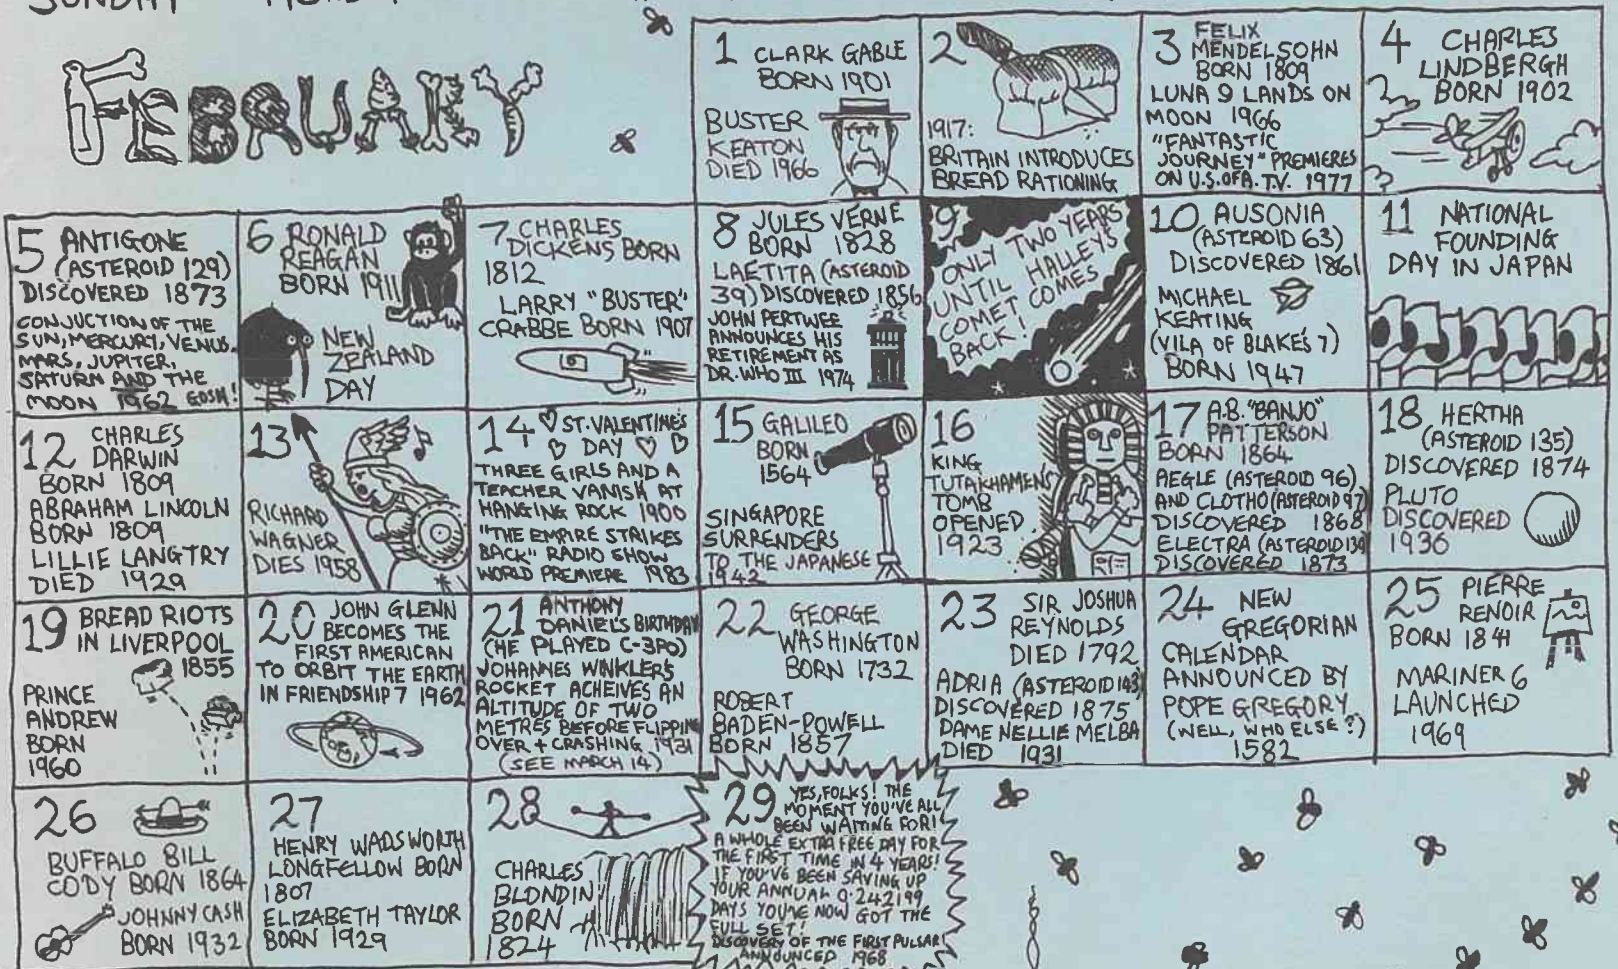 SUNDAY
FEBRUARY
1 CLARK GABLE
BORN 1901
BUSTER
KEATON
DIED 1966
2
1917:
BRITAIN INTRODUCES
BREAD RATIONING
3 FELIX
MENDELSOHN
BORN 1809
LUNA 9 LANDS ON
MOON 1966
"FANTASTIC
JOURNEY" PREMIERES
ON U.S.OFA. T.V. 1977
4 CHARLES
LINDBERGH
BORN 1902
5 ANTIGONE
(ASTEROID 129)
DISCOVERED 1873
CONJUCTION OF THE
SUN, MERCURY, VENUS,
MARS, JUPITER,
SATURN AND THE
MOON 1962 GOSH!
6 RONALD
REAGAN
BORN 1911
NEW
ZEALAND
DAY
7 CHARLES
DICKENS BORN
1812
LARRY "BUSTER"
CRABBE BORN 1907
8 JULES VERNE
BORN 1828
LAETITA (ASTEROID
39) DISCOVERED 1856
JOHN PERTWEE
ANNOUNCES HIS
RETIREMENT AS
DR. WHO III 1974
9
ONLY TWO YEARS
UNTIL HALLEYS
COMET COMES
BACK!
10 AUSONIA
(ASTEROID 63)
DISCOVERED 1861
MICHAEL
KEATING
(VILA OF BLAKE'S 7)
BORN 1947
11 NATIONAL
FOUNDING
DAY IN JAPAN
12 CHARLES
DARWIN
BORN 1809
ABRAHAM LINCOLN
BORN 1809
LILLIE LANGTRY
DIED 1929
13
RICHARD
WAGNER
DIES 1958
14 ST. VALENTINE'S
DAY
THREE GIRLS AND A
TEACHER VANISH AT
HANGING ROCK 1900
"THE EMPIRE STRIKES
BACK" RADIO SHOW
WORLD PREMIERE 1983
15 GALILEO
BORN
1564
SINGAPORE
SURRENDERS
TO THE JAPANESE
1942
16
KING
TUTAKHAMENS
TOMB
OPENED
1923
17 A.B. "BANJO"
PATTERSON
BORN 1864
AEGLE (ASTEROID 96)
AND CLOTHO (ASTEROID 97)
DISCOVERED 1868
ELECTRA (ASTEROID 130)
DISCOVERED 1873
18 HERTHA
(ASTEROID 135)
DISCOVERED 1874
PLUTO
DISCOVERED
1936
19 BREAD RIOTS
IN LIVERPOOL
1855
PRINCE
ANDREW
BORN
1960
20 JOHN GLENN
BECOMES THE
FIRST AMERICAN
TO ORBIT THE EARTH
IN FRIENDSHIP 7 1962
21 ANTHONY
DANIEL'S BIRTHDAY
(HE PLAYED C-3PO)
JOHANNES WINKLER'S
ROCKET ACHEIVES AN
ALTITUDE OF TWO
METRES BEFORE FLIPPING
OVER + CRASHING 1931
(SEE MARCH 14)
22 GEORGE
WASHINGTON
BORN 1732
ROBERT
BADEN-POWELL
BORN 1857
23 SIR JOSHUA
REYNOLDS
DIED 1792
ADRIA (ASTEROID 143)
DISCOVERED 1875
DAME NELLIE MELBA
DIED 1931
24 NEW
GREGORIAN
CALENDAR
ANNOUNCED BY
POPE GREGORY
(WELL, WHO ELSE?)
1582
25 PIERRE
RENOIR
BORN 1841
MARINER 6
LAUNCHED
1969
26
BUFFALO BILL
CODY BORN 1864
JOHNNY CASH
BORN 1932
27
HENRY WADSWORTH
LONGFELLOW BORN
1807
ELIZABETH TAYLOR
BORN 1929
28
CHARLES
BLONDIN
BORN
1824
29 YES, FOLKS! THE
MOMENT YOU'VE ALL
BEEN WAITING FOR!
A WHOLE EXTRA FREE DAY FOR
THE FIRST TIME IN 4 YEARS!
IF YOU'VE BEEN SAVING UP
YOUR ANNUAL 0.242199
DAYS YOU'VE NOW GOT THE
FULL SET!
DISCOVERY OF THE FIRST PULSAR
ANNOUNCED 1968